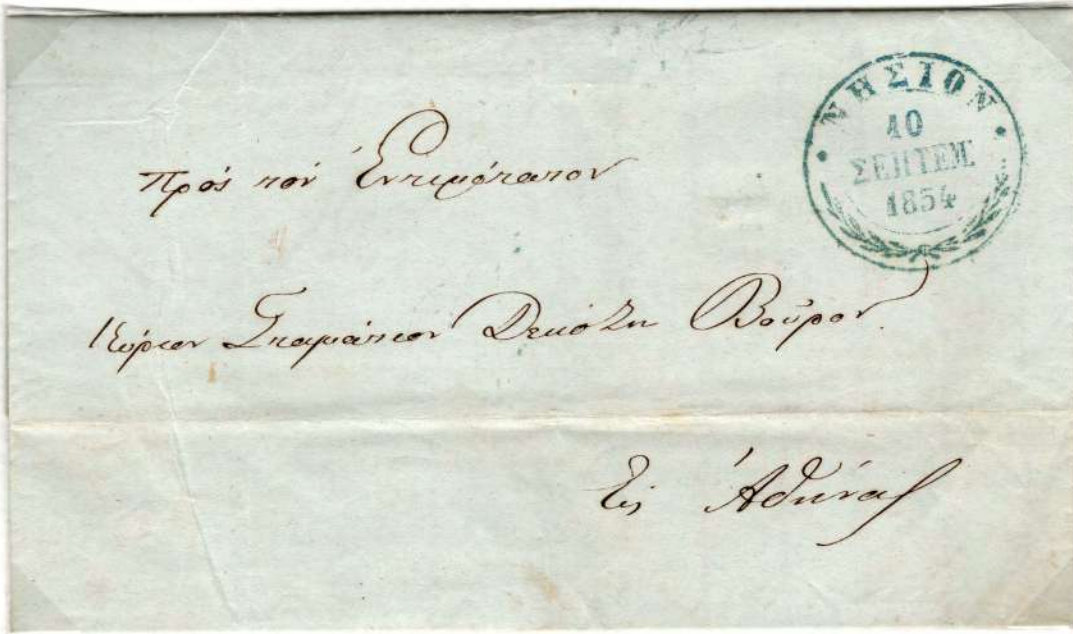 ΝΗΣΙΟΝ
10
ΣΕΠΤΕΜ.
1854
πρὸς τὸν Ἐντιμότατον
Κύριον Σταμάτιον Δεκόζη Βοῦρον.
Εἰς Ἀθήνας